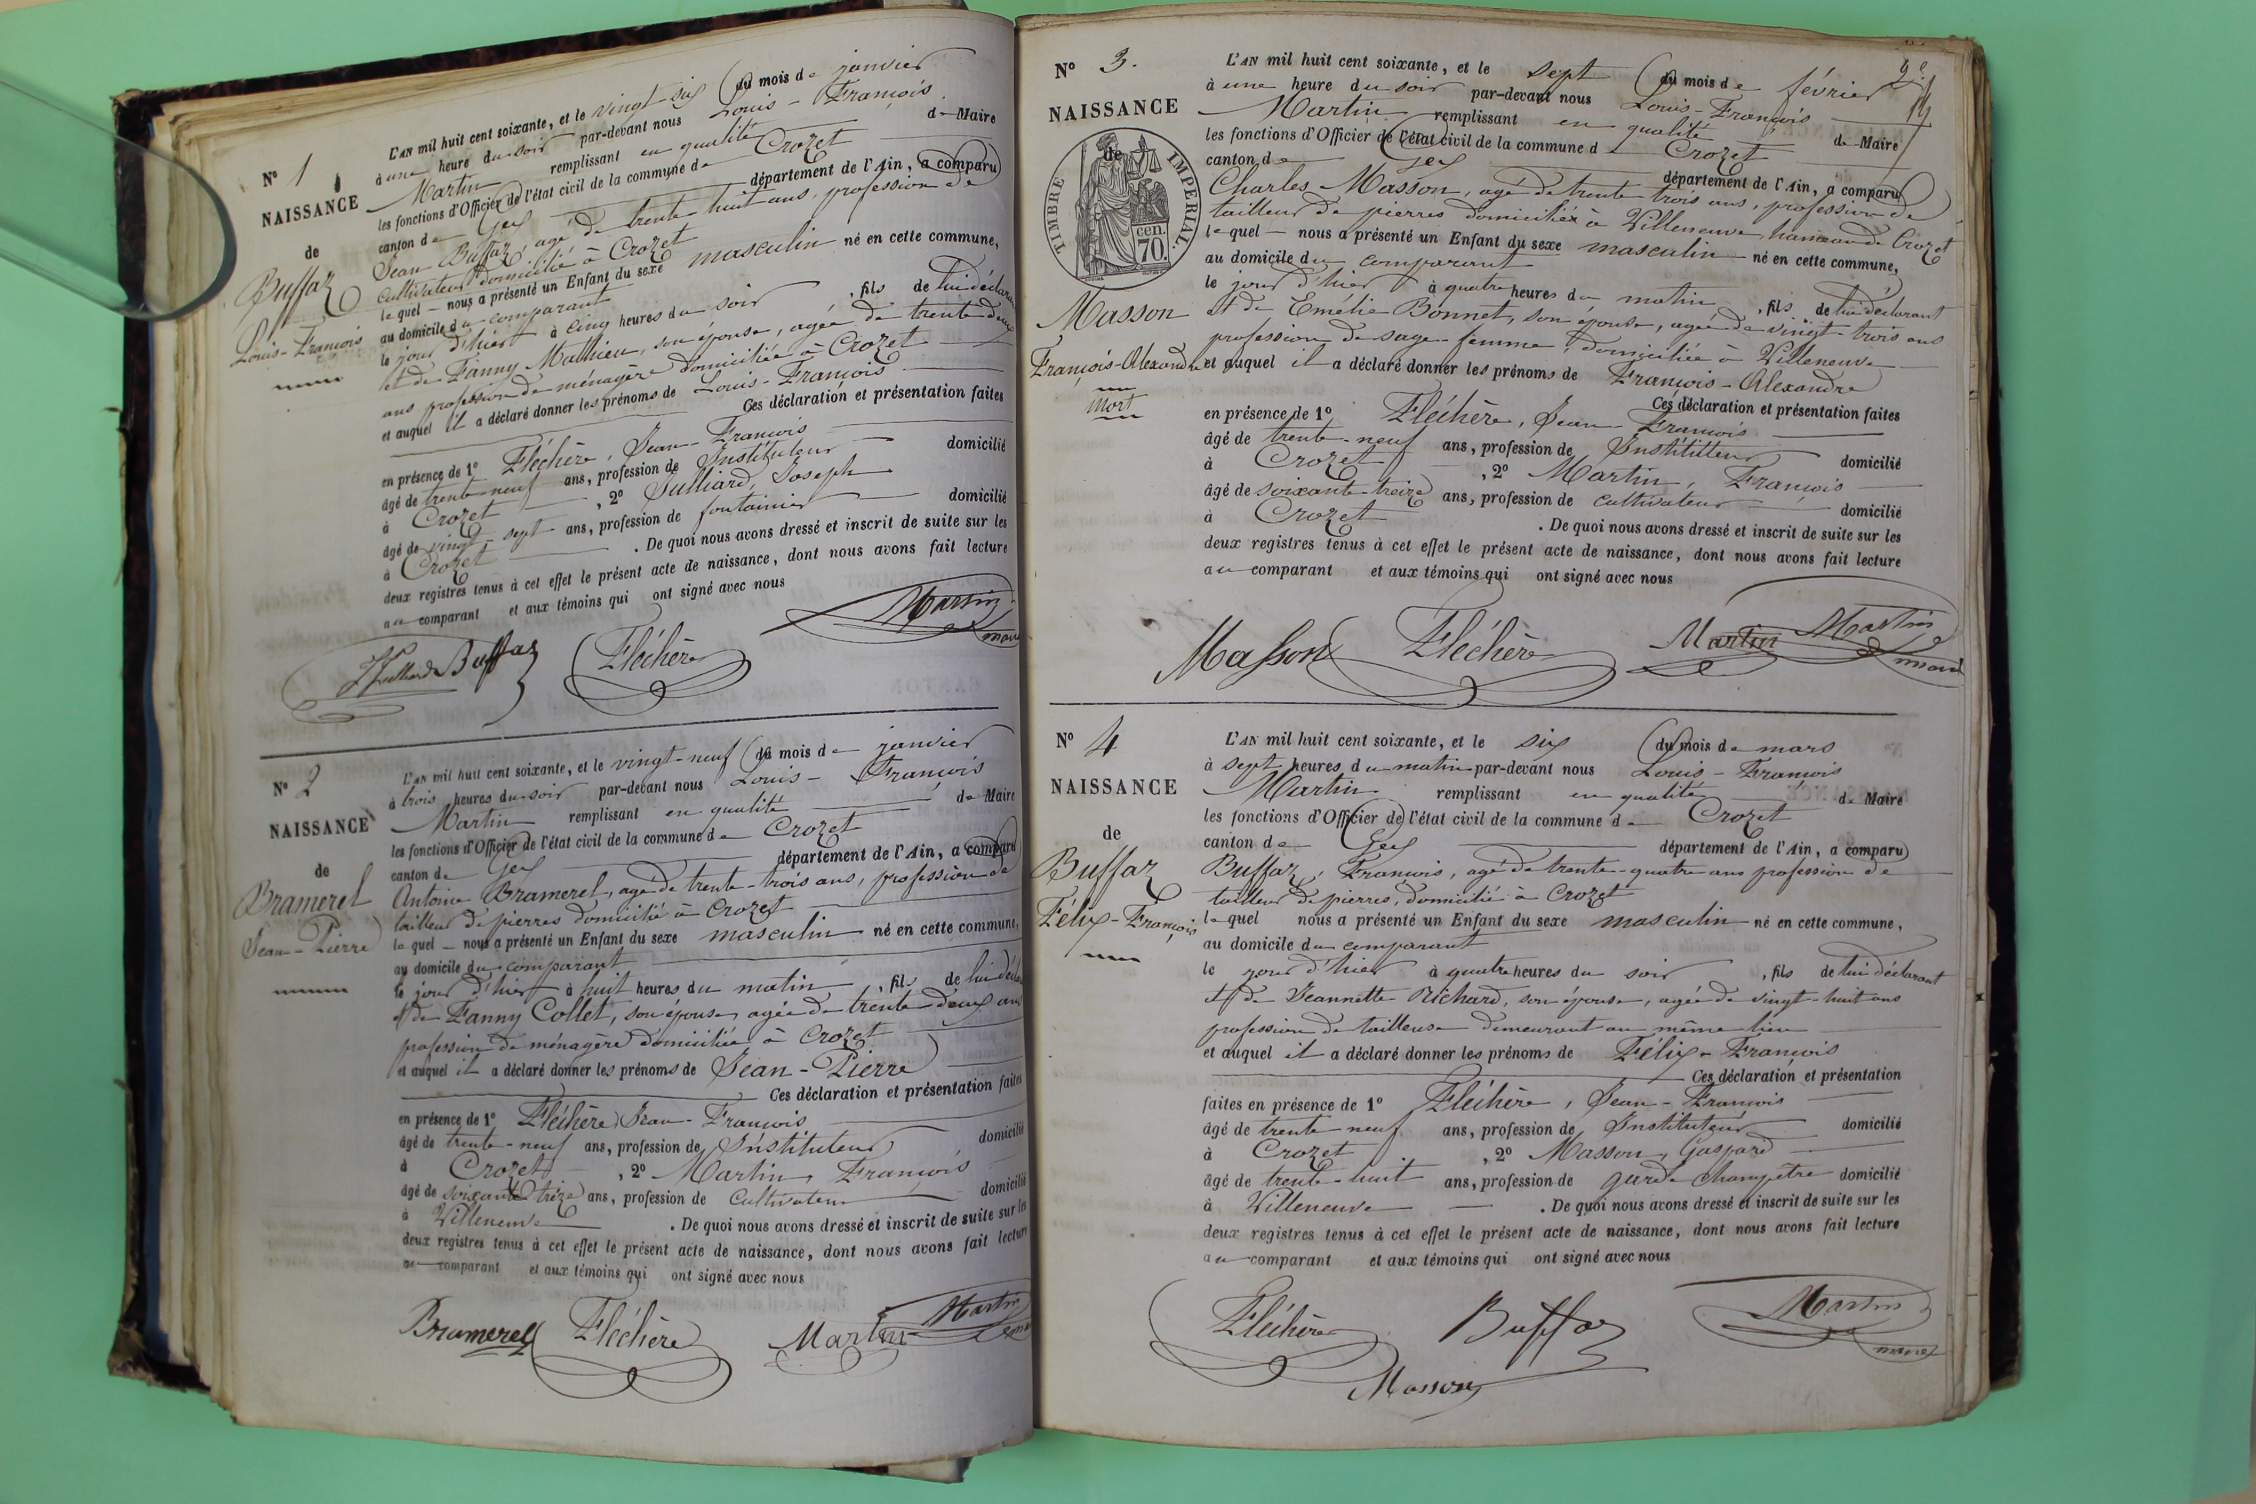 N° 1
NAISSANCE
de
Buffaz
Louis-François
L'AN mil huit cent soixante, et le vingt six du mois de janvier
à une heure du soir par-devant nous Louis-François
Martin remplissant en qualité de Maire
les fonctions d'Officier de l'état civil de la commune de Crozet
canton de Gex département de l'Ain, a comparu
Jean Buffaz, agé de trente huit ans, profession de
cultivateur domicilié à Crozet
lequel nous a présenté un Enfant du sexe masculin né en cette commune,
au domicile du comparant
le jour d'hier à cinq heures du soir, fils de lui déclarant
et de Fanny Mathieu, son épouse, agée de trente deux
ans profession de ménagère domiciliée à Crozet
et auquel il a déclaré donner les prénoms de Louis-François
Ces déclaration et présentation faites
en présence de 1° Fléchère, Jean-François
âgé de trente-neuf ans, profession de Instituteur domicilié
à Crozet, 2° Julliard, Joseph
âgé de vingt-sept ans, profession de fontainier domicilié
à Crozet. De quoi nous avons dressé et inscrit de suite sur les
deux registres tenus à cet effet le présent acte de naissance, dont nous avons fait lecture
au comparant et aux témoins qui ont signé avec nous
Julliard Buffaz Fléchère Martin
maire
N° 2
NAISSANCE
de
Bramerel
Jean-Pierre
L'AN mil huit cent soixante, et le vingt-neuf du mois de janvier
à trois heures du soir par-devant nous Louis-François
Martin remplissant en qualité de Maire
les fonctions d'Officier de l'état civil de la commune de Crozet
canton de Gex département de l'Ain, a comparu
Antoine Bramerel, agé de trente-trois ans, profession de
tailleur de pierres domicilié à Crozet
lequel nous a présenté un Enfant du sexe masculin né en cette commune,
au domicile du comparant
le jour d'hier à huit heures du matin, fils de lui décla
et de Fanny Collet, son épouse, agée de trente-deux ans
profession de ménagère domiciliée à Crozet
et auquel il a déclaré donner les prénoms de Jean-Pierre
Ces déclaration et présentation faites
en présence de 1° Fléchère Jean-François
âgé de trente-neuf ans, profession de Instituteur domicilié
à Crozet, 2° Martin, François
âgé de soixante treize ans, profession de cultivateur domicilié
à Villeneuve. De quoi nous avons dressé et inscrit de suite sur les
deux registres tenus à cet effet le présent acte de naissance, dont nous avons fait lecture
au comparant et aux témoins qui ont signé avec nous
Bramerel Fléchère Martin Martin
N° 3.
NAISSANCE
de
TIMBRE IMPERIAL.
70. cen.
Masson
François-Alexandre
Mort
L'AN mil huit cent soixante, et le sept du mois de février
à une heure du soir par-devant nous Louis-François
Martin remplissant en qualité de Maire
les fonctions d'Officier de l'état civil de la commune d Crozet
canton de Gex département de l'Ain, a comparu
Charles Masson, agé de trente trois ans, profession de
tailleur de pierres domicilié à Villeneuve, hameau de Crozet
lequel nous a présenté un Enfant du sexe masculin né en cette commune,
au domicile du comparant
le jour d'hier à quatre heures du matin, fils de lui déclarant
et de Emélie Bonnet, son épouse, agée de vingt-trois ans
profession de sage-femme, domiciliée à Villeneuve
et auquel il a déclaré donner les prénoms de François-Alexandre
Ces déclaration et présentation faites
en présence de 1° Fléchère, Jean-François
âgé de trente-neuf ans, profession de Instituteur domicilié
à Crozet, 2° Martin, François
âgé de soixante-treize ans, profession de cultivateur domicilié
à Crozet. De quoi nous avons dressé et inscrit de suite sur les
deux registres tenus à cet effet le présent acte de naissance, dont nous avons fait lecture
au comparant et aux témoins qui ont signé avec nous
Masson Fléchère Martin Martin
maire
N° 4
NAISSANCE
de
Buffaz
Félix-François
L'AN mil huit cent soixante, et le six du mois de mars
à sept heures du matin par-devant nous Louis-François
Martin remplissant en qualité de Maire
les fonctions d'Officier de l'état civil de la commune de Crozet
canton de Gex département de l'Ain, a comparu
Buffaz, François, agé de trente-quatre ans profession de
tailleur de pierres, domicilié à Crozet
lequel nous a présenté un Enfant du sexe masculin né en cette commune,
au domicile du comparant
le jour d'hier à quatre heures du soir, fils de lui déclarant
et de Jeannette Richard, son épouse, agée de vingt-huit ans
profession de tailleuse demeurant au même lieu
et auquel il a déclaré donner les prénoms de Félix-François
Ces déclaration et présentation
faites en présence de 1° Fléchère, Jean-François
âgé de trente neuf ans, profession de Instituteur domicilié
à Crozet, 2° Masson, Gaspard
âgé de trente-huit ans, profession de garde champêtre domicilié
à Villeneuve. De quoi nous avons dressé et inscrit de suite sur les
deux registres tenus à cet effet le présent acte de naissance, dont nous avons fait lecture
au comparant et aux témoins qui ont signé avec nous
Fléchère Buffaz Martin
maire
Masson